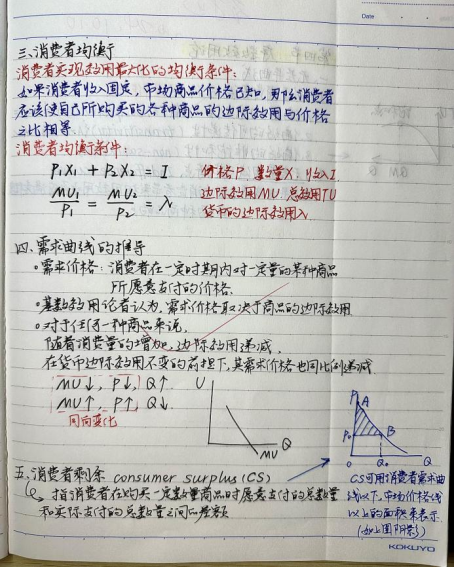 Date
三、消费者均衡
消费者实现效用最大化的均衡条件:
如果消费者收入固定，市场商品价格已知，那么消费者
应该使自己所购买的各种商品的边际效用与价格
之比相等
消费者均衡条件:
P₁X₁ + P₂X₂ = I 价格P. 数量X, 收入I
MU₁/P₁ = MU₂/P₂ = λ 边际效用MU. 总效用TU
货币的边际效用λ
四、需求曲线的推导
•需求价格：消费者在一定时期内对一定量的某种商品
所愿意支付的价格.
•基数效用论者认为，需求价格取决于商品的边际效用
•对于任何一种商品来说，
随着消费量的增加，边际效用递减，
在货币边际效用不变的前提下，其需求价格也同比例递减
MU↓, P↓, Q↑
MU↑, P↑, Q↓
同向变化
U
Q
MU
P
A
P₀
B
O
Q₀
Q
五、消费者剩余 consumer surplus (CS)
指消费者在购买一定数量商品时愿意支付的总数量
和实际支付的总数量之间的差额
CS可用消费者需求曲
线以下，市场价格线
以上的面积来表示
(如上图阴影)
KOKUYO